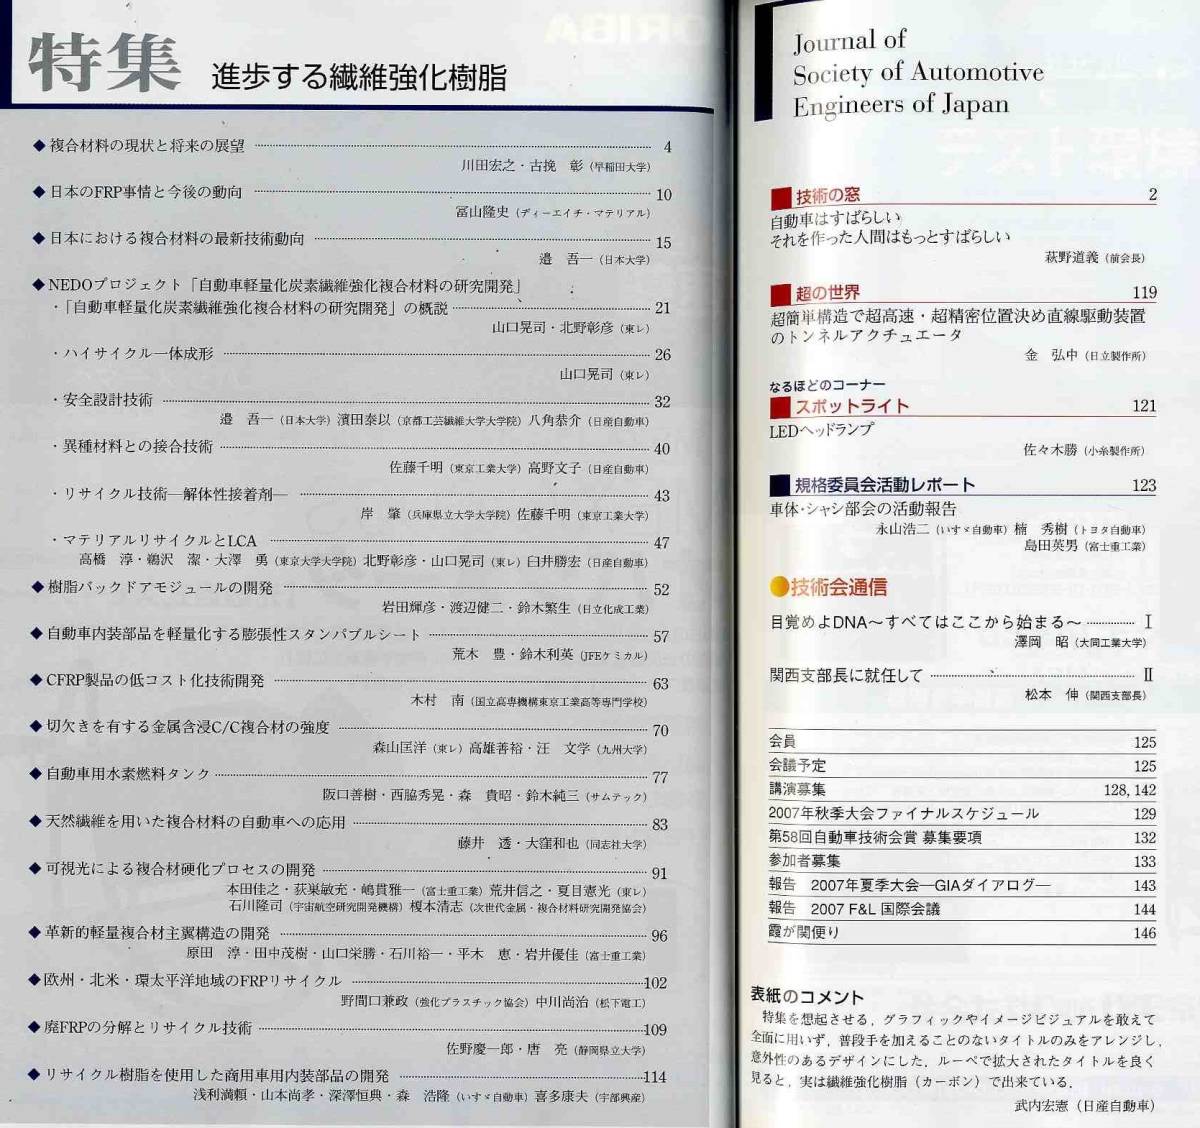 特集 進歩する繊維強化樹脂
◆複合材料の現状と将来の展望 4
川田宏之・古挽 彰（早稲田大学）
◆日本のFRP事情と今後の動向 10
冨山隆史（ディーエイチ・マテリアル）
◆日本における複合材料の最新技術動向 15
邉 吾一（日本大学）
◆NEDOプロジェクト「自動車軽量化炭素繊維強化複合材料の研究開発」
・「自動車軽量化炭素繊維強化複合材料の研究開発」の概説 21
山口晃司・北野彰彦（東レ）
・ハイサイクル一体成形 26
山口晃司（東レ）
・安全設計技術 32
邉 吾一（日本大学）濱田泰以（京都工芸繊維大学大学院）八角恭介（日産自動車）
・異種材料との接合技術 40
佐藤千明（東京工業大学）高野文子（日産自動車）
・リサイクル技術―解体性接着剤― 43
岸 肇（兵庫県立大学大学院）佐藤千明（東京工業大学）
・マテリアルリサイクルとLCA 47
高橋 淳・鵜沢 潔・大澤 勇（東京大学大学院）北野彰彦・山口晃司（東レ）臼井勝宏（日産自動車）
◆樹脂バックドアモジュールの開発 52
岩田輝彦・渡辺健二・鈴木繁生（日立化成工業）
◆自動車内装部品を軽量化する膨張性スタンパブルシート 57
荒木 豊・鈴木利英（JFEケミカル）
◆CFRP製品の低コスト化技術開発 63
木村 南（国立高専機構東京工業高等専門学校）
◆切欠きを有する金属含浸C/C複合材の強度 70
森山匡洋（東レ）高雄善裕・汪 文学（九州大学）
◆自動車用水素燃料タンク 77
阪口善樹・西脇秀晃・森 貴昭・鈴木純三（サムテック）
◆天然繊維を用いた複合材料の自動車への応用 83
藤井 透・大窪和也（同志社大学）
◆可視光による複合材硬化プロセスの開発 91
本田佳之・荻巣敏充・嶋貫雅一（富士重工業）荒井信之・夏目憲光（東レ）
石川隆司（宇宙航空研究開発機構）榎本清志（次世代金属・複合材料研究開発協会）
◆革新的軽量複合材主翼構造の開発 96
原田 淳・田中茂樹・山口栄勝・石川裕一・平木 恵・岩井優佳（富士重工業）
◆欧州・北米・環太平洋地域のFRPリサイクル 102
野間口兼政（強化プラスチック協会）中川尚治（松下電工）
◆廃FRPの分解とリサイクル技術 109
佐野慶一郎・唐 亮（静岡県立大学）
◆リサイクル樹脂を使用した商用車用内装部品の開発 114
浅利満頼・山本尚孝・深澤恒典・森 浩隆（いすゞ自動車）喜多康夫（宇部興産）
Journal of
Society of Automotive
Engineers of Japan
技術の窓 2
自動車はすばらしい
それを作った人間はもっとすばらしい
萩野道義（前会長）
超の世界 119
超簡単構造で超高速・超精密位置決め直線駆動装置
のトンネルアクチュエータ
金 弘中（日立製作所）
なるほどのコーナー
スポットライト 121
LEDヘッドランプ
佐々木勝（小糸製作所）
規格委員会活動レポート 123
車体・シャシ部会の活動報告
永山浩二（いすゞ自動車）楠 秀樹（トヨタ自動車）
島田英男（富士重工業）
技術会通信
目覚めよDNA～すべてはここから始まる～ Ⅰ
澤岡 昭（大同工業大学）
関西支部長に就任して Ⅱ
松本 伸（関西支部長）
会員 125
会議予定 125
講演募集 128, 142
2007年秋季大会ファイナルスケジュール 129
第58回自動車技術会賞 募集要項 132
参加者募集 133
報告 2007年夏季大会―GIAダイアログ― 143
報告 2007 F&L 国際会議 144
霞が関便り 146
表紙のコメント
特集を想起させる，グラフィックやイメージビジュアルを敢えて
全面に用いず，普段手を加えることのないタイトルのみをアレンジし，
意外性のあるデザインにした．ルーペで拡大されたタイトルを良く
見ると，実は繊維強化樹脂（カーボン）で出来ている．
武内宏憲（日産自動車）